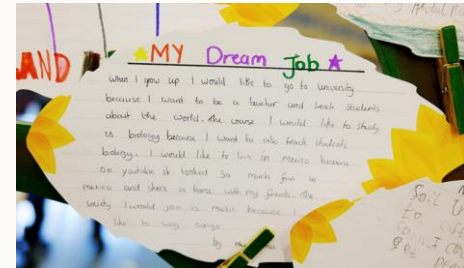 AND
MY Dream Job
when I grow up I would like to go to university
because I want to be a teacher and teach students
about the world. the course I would like to study
is biology because I want to also teach students
biology. I would like to live in mexico because
on youtube it looked so much fun in
mexico and share a home with my friends. the
society I would join is music because I
like to sing songs
by
Soil
to